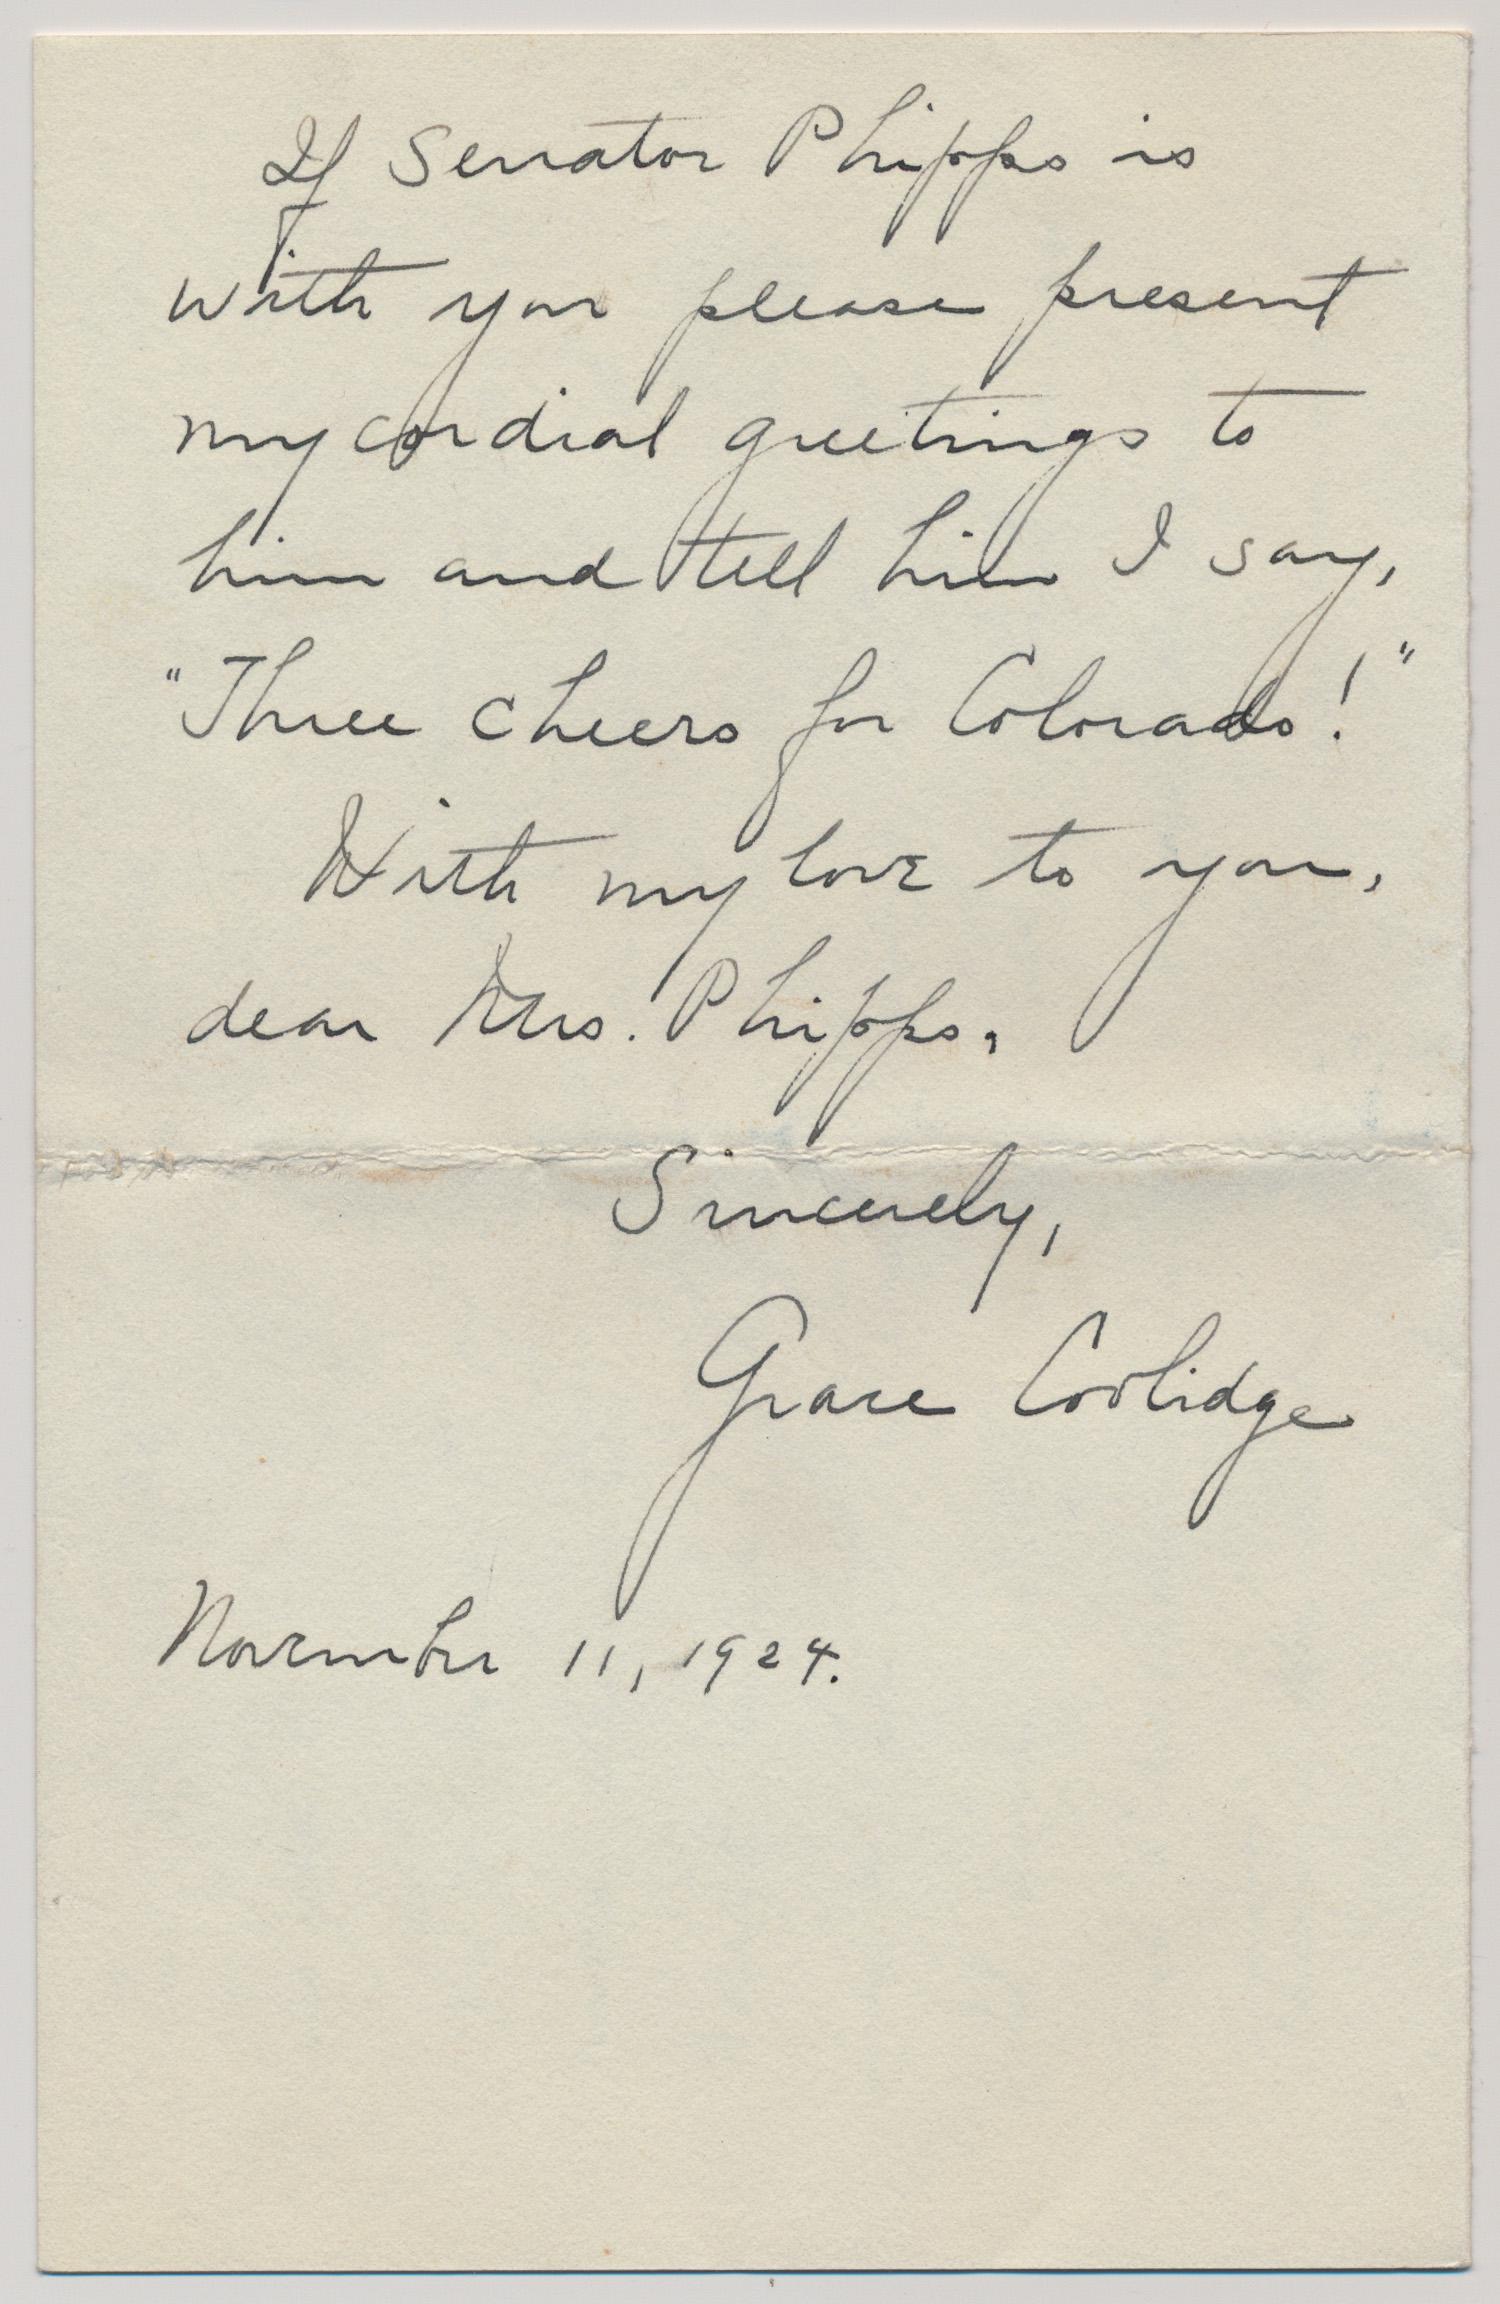 If Senator Phipps is
with you please present
my cordial greetings to
him and tell him I say,
"Three cheers for Colorado!"
With my love to you,
dear Mrs. Phipps,
Sincerely,
Grace Coolidge
November 11, 1924.